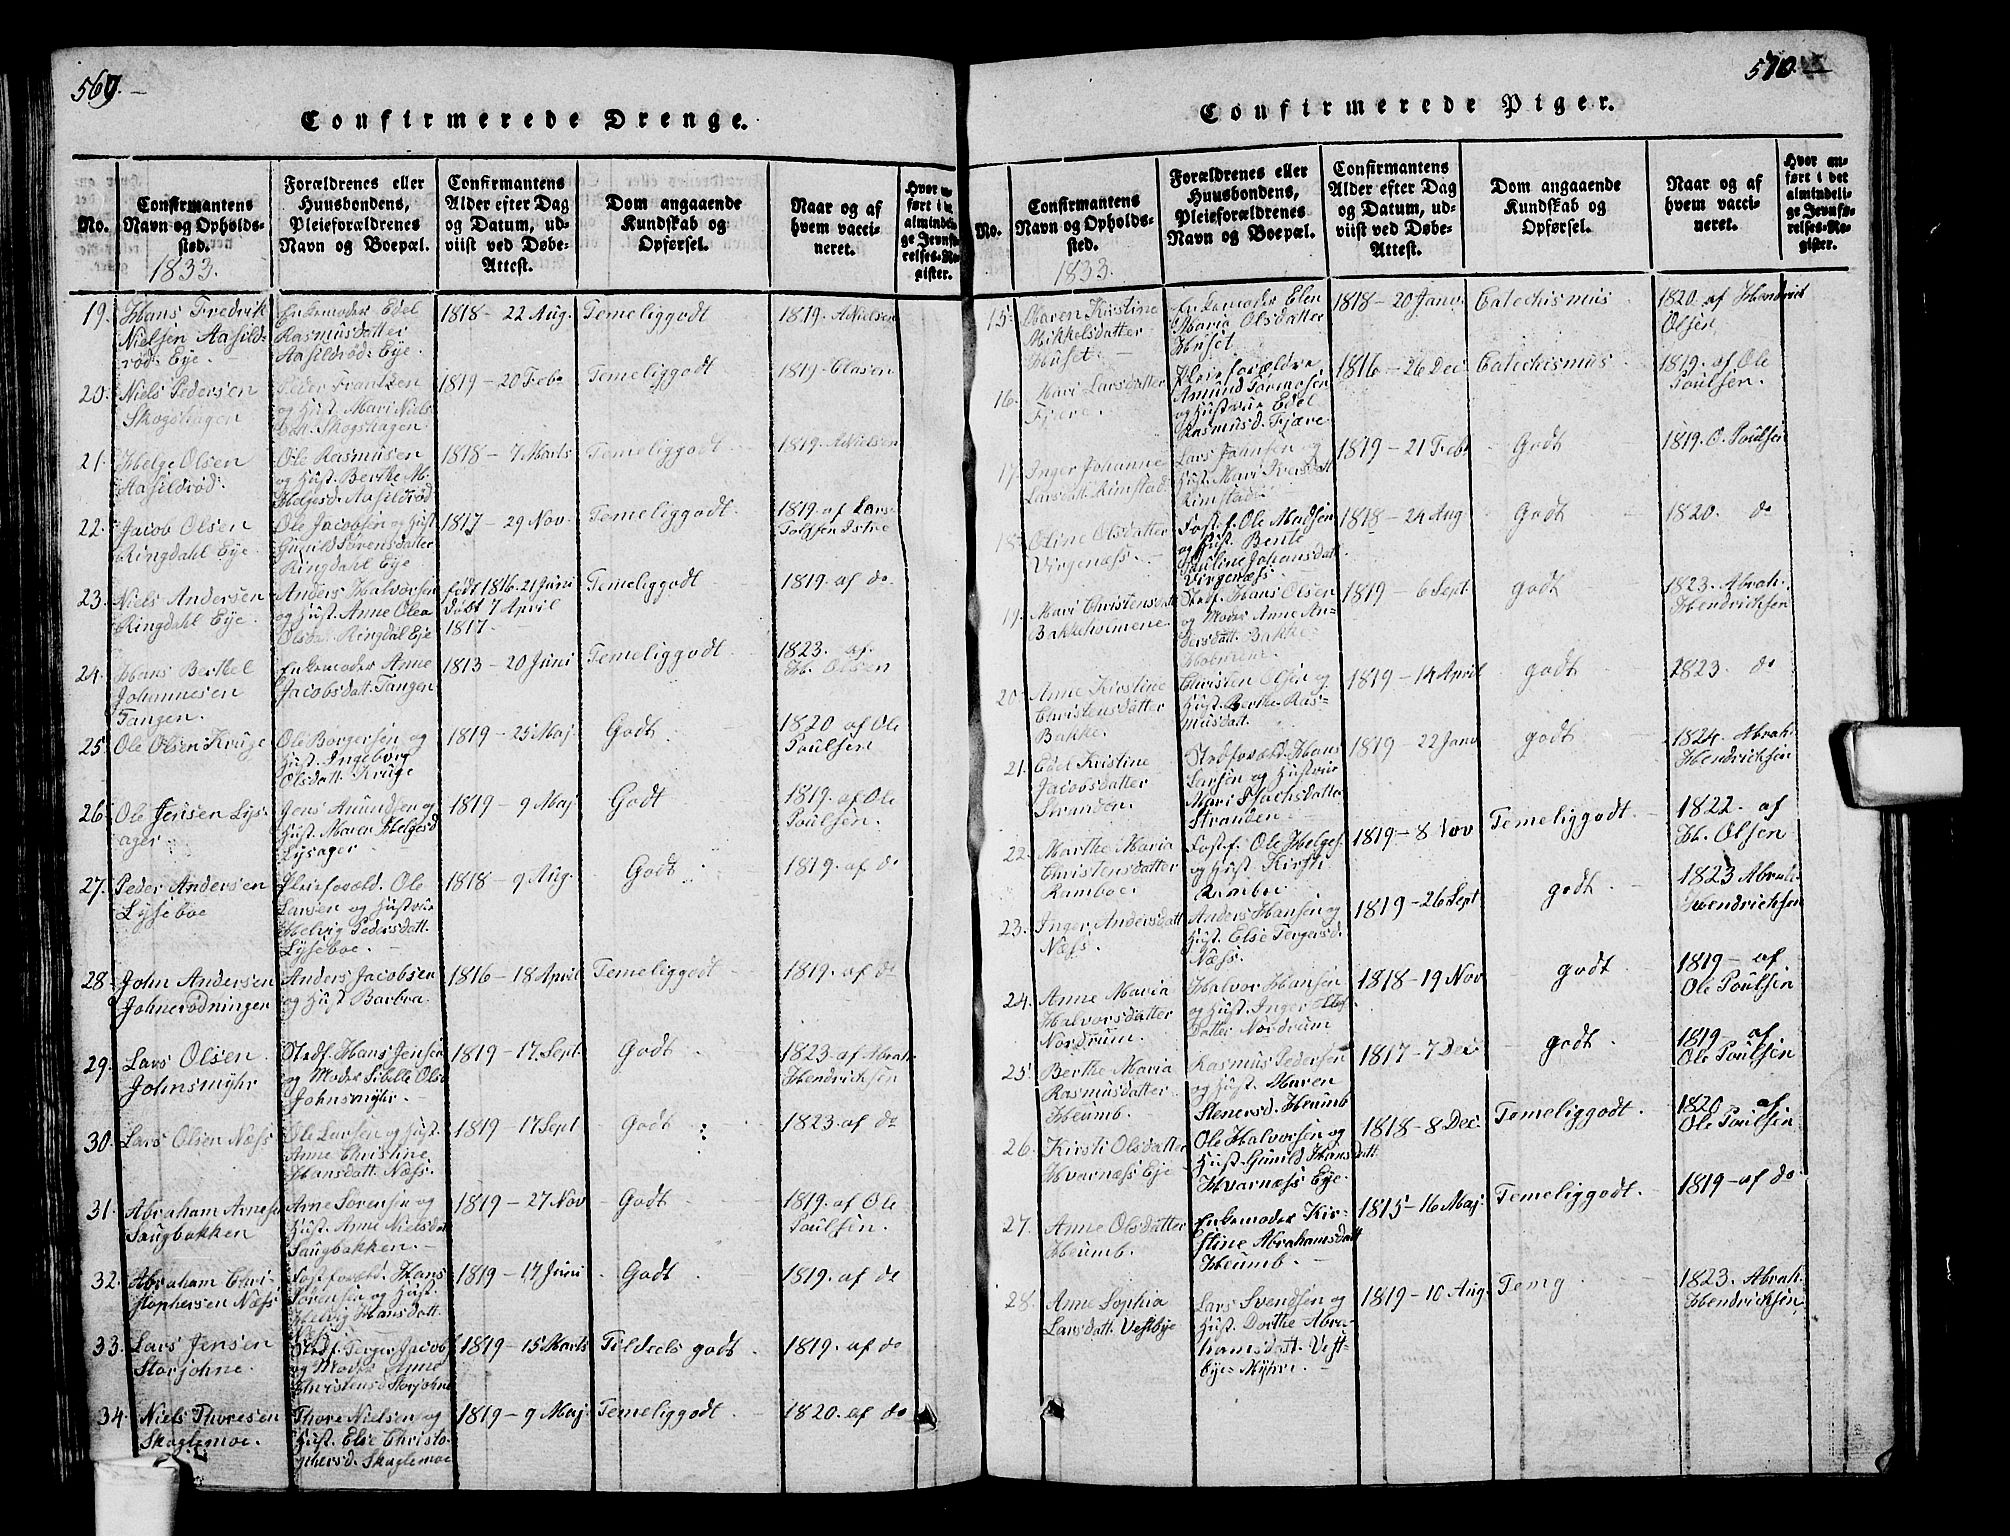 569.
Confirmerede Drenge.
No.
Confirmantens
Navn og Opholds-
sted.
1833.
Forældrenes eller
Huusbondens,
Pleieforældrenes
Navn og Boepæl.
Confirmantens
Alder efter Dag
og Datum, ud-
viist ved Døbe-
Attest.
Dom angaaende
Kundskab og
Opførsel.
Naar og af
hvem vacci-
neret.
19.
Hans Fredrik
Nielsen Aasild-
rød: Eye.
Enkemoder Edel
Rasmusdatter
Aasildrød: Eye.
1818 - 22 Aug.
Temeliggodt
1819. A Nielsen
20.
Niels Pedersen
Skogshagen
Peder Frantzen
og Hust. Mari Niels-
dat. Skogshagen.
1819 - 20 Feb.
Temeliggodt
1819. Clasen
21.
Helge Olsen
Aasildrød.
Ole Rasmusen
og Hust. Berthe M.
Helgesd. Aasildrød
1818 - 7 Marts
Temeliggodt
1819. A Nielsen
22.
Jacob Olsen
Ringdahl Eye.
Ole Jacobsen og Hust
Gunild Sørensdatter
Ringdahl Eye
1817 - 29 Nov.
Temeliggodt.
1819. af Lars
23.
Niels Andersen
Ringdahl Eye.
Anders Halvorsen
og Hust. Anne Olea
Olsdat. Ringdal Eje
født 1816. 21 Juni
døbt 7 April
1817.
Temeliggodt
1819. af do
24.
Hans Berthel
Johannesen
Tangen.
Enkemoder Anne
Jacobsdat. Tangen
1813 - 20 Juni
Temeliggodt
1823. af
H. Olsen
25.
Ole Olsen Kruge
Ole Borgersen og
Hust. Ingeborg
Olsdatt. Kruge
1819 - 25 Maj
Godt
1820 af Ole
Poulsen
26.
Ole Jensen Lys-
ager
Jens Amundsen og
Hust. Maren Helgesd
Lysager
1819 - 9 Maj
Godt
1819. af Ole
Poulsen.
27.
Peder Andersen
Lyseboe
Pleieforæld. Ole
Larsen og Hustrue
Helvig Pedersdatt.
Lyseboe.
1818 - 9 Aug.
Godt
1819. af do
28.
John Andersen
Johnerødningen
Anders Jacobsen
og Hust. Barbra
1816 - 18 April
Temeliggodt
1819. af do
29.
Lars Olsen
Johnsmyhr
Stedf. Hans Jensen
og Moder Sibille Olsd
Johnsmyhr.
1819 - 17. Sept.
Godt
1823. af Abrah.
Hendricksen
30.
Lars Olsen Næss
Ole Larsen og Hust.
Anne Christine
Hansdatt. Næss.
1819 - 17 Sept
Godt
1823. af do
31.
Abraham Arnesen
Saugbakken
Arne Sørensen og
Hust. Anne Nielsdat
Saugbakken.
1819 - 27 Nov
Godt
1819. af Ole
Poulsen.
32.
Abraham Chri-
stophersen Næss
Fostforæld. Hans
Sørensen og Hust.
Helvig Hansdatt.
Næss.
1819 - 17 Juni
Godt
1819. af do
33.
Lars Jensen
Storjohne.
Stedf. Terger Jacobs
og Moder Anne
Christensd Storjohne
1819 - 15 Marts
Tildeels godt
1819. af do
34.
Niels Thoresen
Skaglemoe.
Thore Nielsen og
Hust. Else Christo-
phersd. Skaglemoe
1819 - 9 Maj.
Temeliggodt
1820. af do
570.
Confirmerede Piger.
No.
Confirmantens
Navn og Opholds-
sted.
1833.
Forældrenes eller
Huusbondens,
Pleieforældrenes
Navn og Boepæl.
Confirmantens
Alder efter Dag
og Datum, ud-
viist ved Døbe-
Attest.
Dom angaaende
Kundskab og
Opførsel.
Naar og af
hvem vacci-
neret.
Hvor an-
ført i det
almindeli-
ge Jevnfø-
relses-Re-
gister.
15.
Maren Kirstine
Mikkelsdatter
Huset.
Enkemoder Elen
Maria Olsdatter
Huset
1818 - 20 Janv.
Catechismus
1820. af Hendrick
Olsen
16.
Mari Larsdatter
Fjære.
Pleieforældre
Amund Tormosen
og Hustrue Edel
Rasmusd. Fjære.
1816 - 26 Dec.
Catechismus
1819. af Ole
Poulsen.
17.
Inger Johanne
Larsdatt. Rimstad.
Lars Jannsen og
Hust. Mari Iversdatt
Rimstad.
1819 - 21 Feb
Godt
1819. O. Poulsen
18.
Oline Olsdatter
Virgenæss.
Fost. f. Ole Madsen
og Hust. Bente
Pauline Johansdatt.
Virgenæss.
1818 - 24 Aug
Godt
1820. do
19.
Mari Christensdatt
Bakkeholmene
Stedf. Hans Olsen
og Moder Anne An-
dersdatt. Bakke-
Holmene.
1819 - 6 Sept
godt
1823. Abrah.
Hendricksen
20.
Anne Kirstine
Christensdatter
Bakke.
Christen Olsen og
Hust. Berthe Ras-
musdatt.
1819 - 14 April
godt
1823. do
21.
Edel Kirstine
Jacobsdatter
Stranden.
Stedforæld. Hans
Larsen og Hustrue
Mari Isachsdatter
Stranden.
1819 - 22 Janv
godt
1824. Abrah.
Hendricksen
22.
Marthe Maria
Christensdatter
Ramboe.
Fost. f. Ole Helges.
og Hust. Kirsti
Ramboe.
1819 - 8 Nov
Temeliggodt.
1822. af
H. Olsen
23.
Inger Andersdatt
Næss.
Anders Hansen og
Hust. Else Tergersd.
Næss.
1819 - 26 Sept
godt
1823 Abrah.
Hendricksen
24.
Anne Maria
Halvorsdatter
Nordrum
Halvor Hansen
og Hust. Inger
datter Nordrum
1818 - 19 Nov
godt
1819 - af
Ole Poulsen
25.
Berthe Maria
Rasmusdatter
Heumb.
Rasmus Pedersen
og Hust. Maren
Stenersd. Heumb
1817 - 7 Dec.
godt
1819 - af
Ole Poulsen
26.
Kirsti Olsdatter
Hvarnæss Eje
Ole Halvorsen og
Hust. Gunild Hansdatt
Hvarnæss Eye.
1818 - 8 Dec.
Temeliggodt.
1820 af
Ole Poulsen
27.
Anne Olsdatter
Heumb.
Enkemoder Kir-
stine Abrahamsdatt
Heumb.
1815 - 16 Maj.
Temeliggodt.
1819 - af do
28.
Anne Sophia
Larsdatt. Vestbye
Lars Svendsen og
Hust. Dorthe Abra-
hamsdatt. Vest-
bye-Myhre.
1819 - 10 Aug.
Temg.
1823. Abrah.
Hendricksen